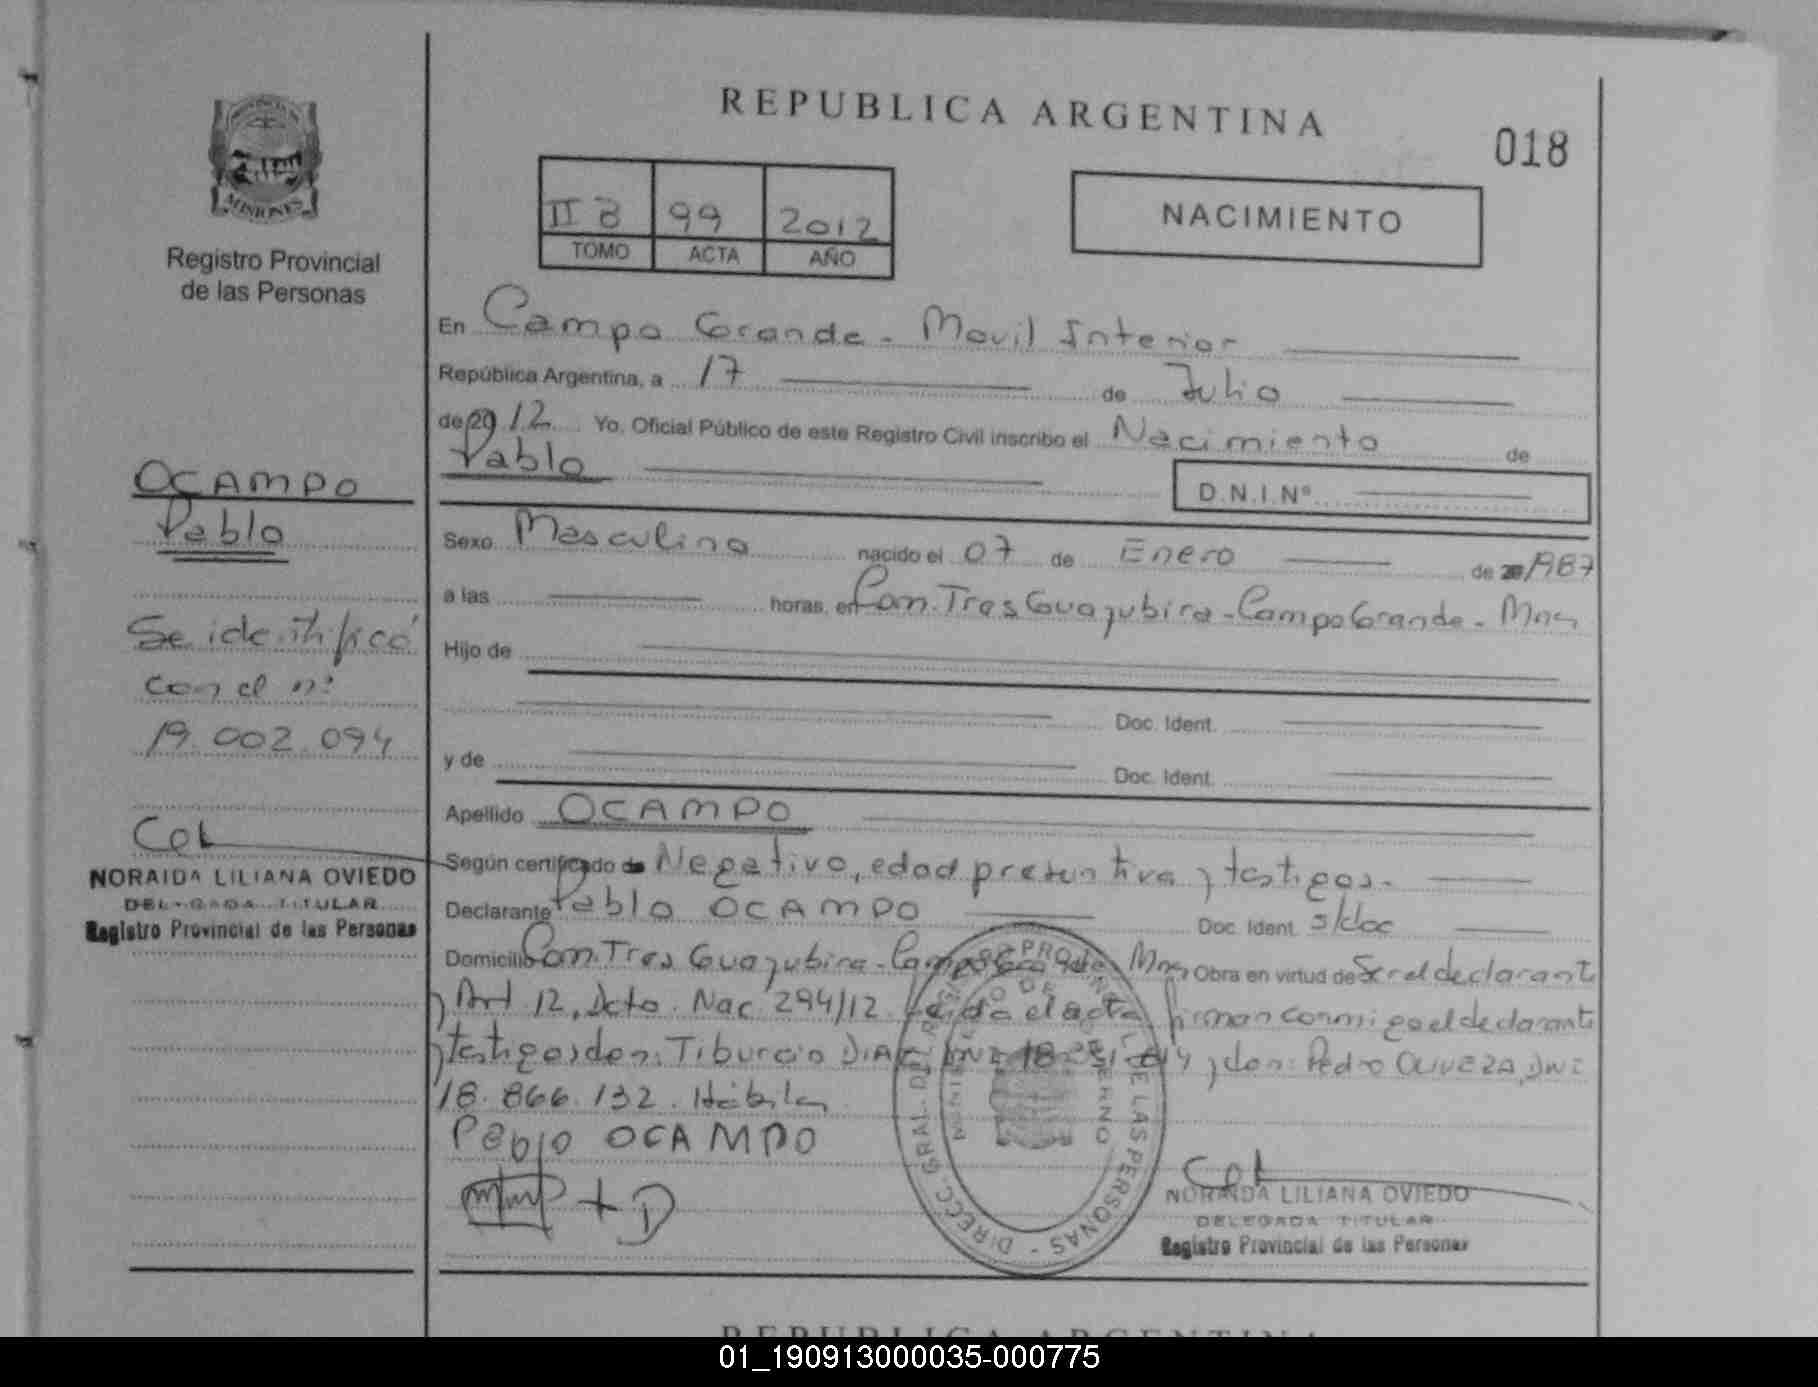 REPUBLICA ARGENTINA
018
MISIONES
Registro Provincial
de las Personas
II B 99 2012
TOMO ACTA AÑO
NACIMIENTO
En Campo Grande - Movil Interior
República Argentina, a 17 de Julio
de 20 12 Yo, Oficial Público de este Registro Civil inscribo el Nacimiento de
Pablo
D.N.I.Nº
OCAMPO
Pablo
Se identificó
con el nº
19.002.094
NORAIDA LILIANA OVIEDO
DELEGADA TITULAR
Registro Provincial de las Personas
Sexo Masculino nacido el 07 de Enero de 1987
a las horas, en Com. Tres Guayubira - Campo Grande - Mnes
Hijo de
Doc. Ident.
y de
Doc. Ident.
Apellido OCAMPO
Según certificado de Negativo, edad presuntiva y testigos.
Declarante Pablo OCAMPO Doc. Ident. s/doc
Domicilio Com. Tres Guayubira - Campo Grande Mnes Obra en virtud de Ser el declarante
y Art 12, Dcto. Nac 294/12 Leida el acta firman conmigo el declarante
y testigos don: Tiburcio DIAZ DNI 18 y don: Pedro OLIVEZA, DNI
18.866.132. Hábiles
Pablo OCAMPO
DIREC. GRAL. DEL REGISTRO PROVINCIAL DE LAS PERSONAS
MINISTERIO DE GOBIERNO
NORAIDA LILIANA OVIEDO
DELEGADA TITULAR
Registro Provincial de las Personas
REPUBLICA ARGENTINA
01_190913000035-000775